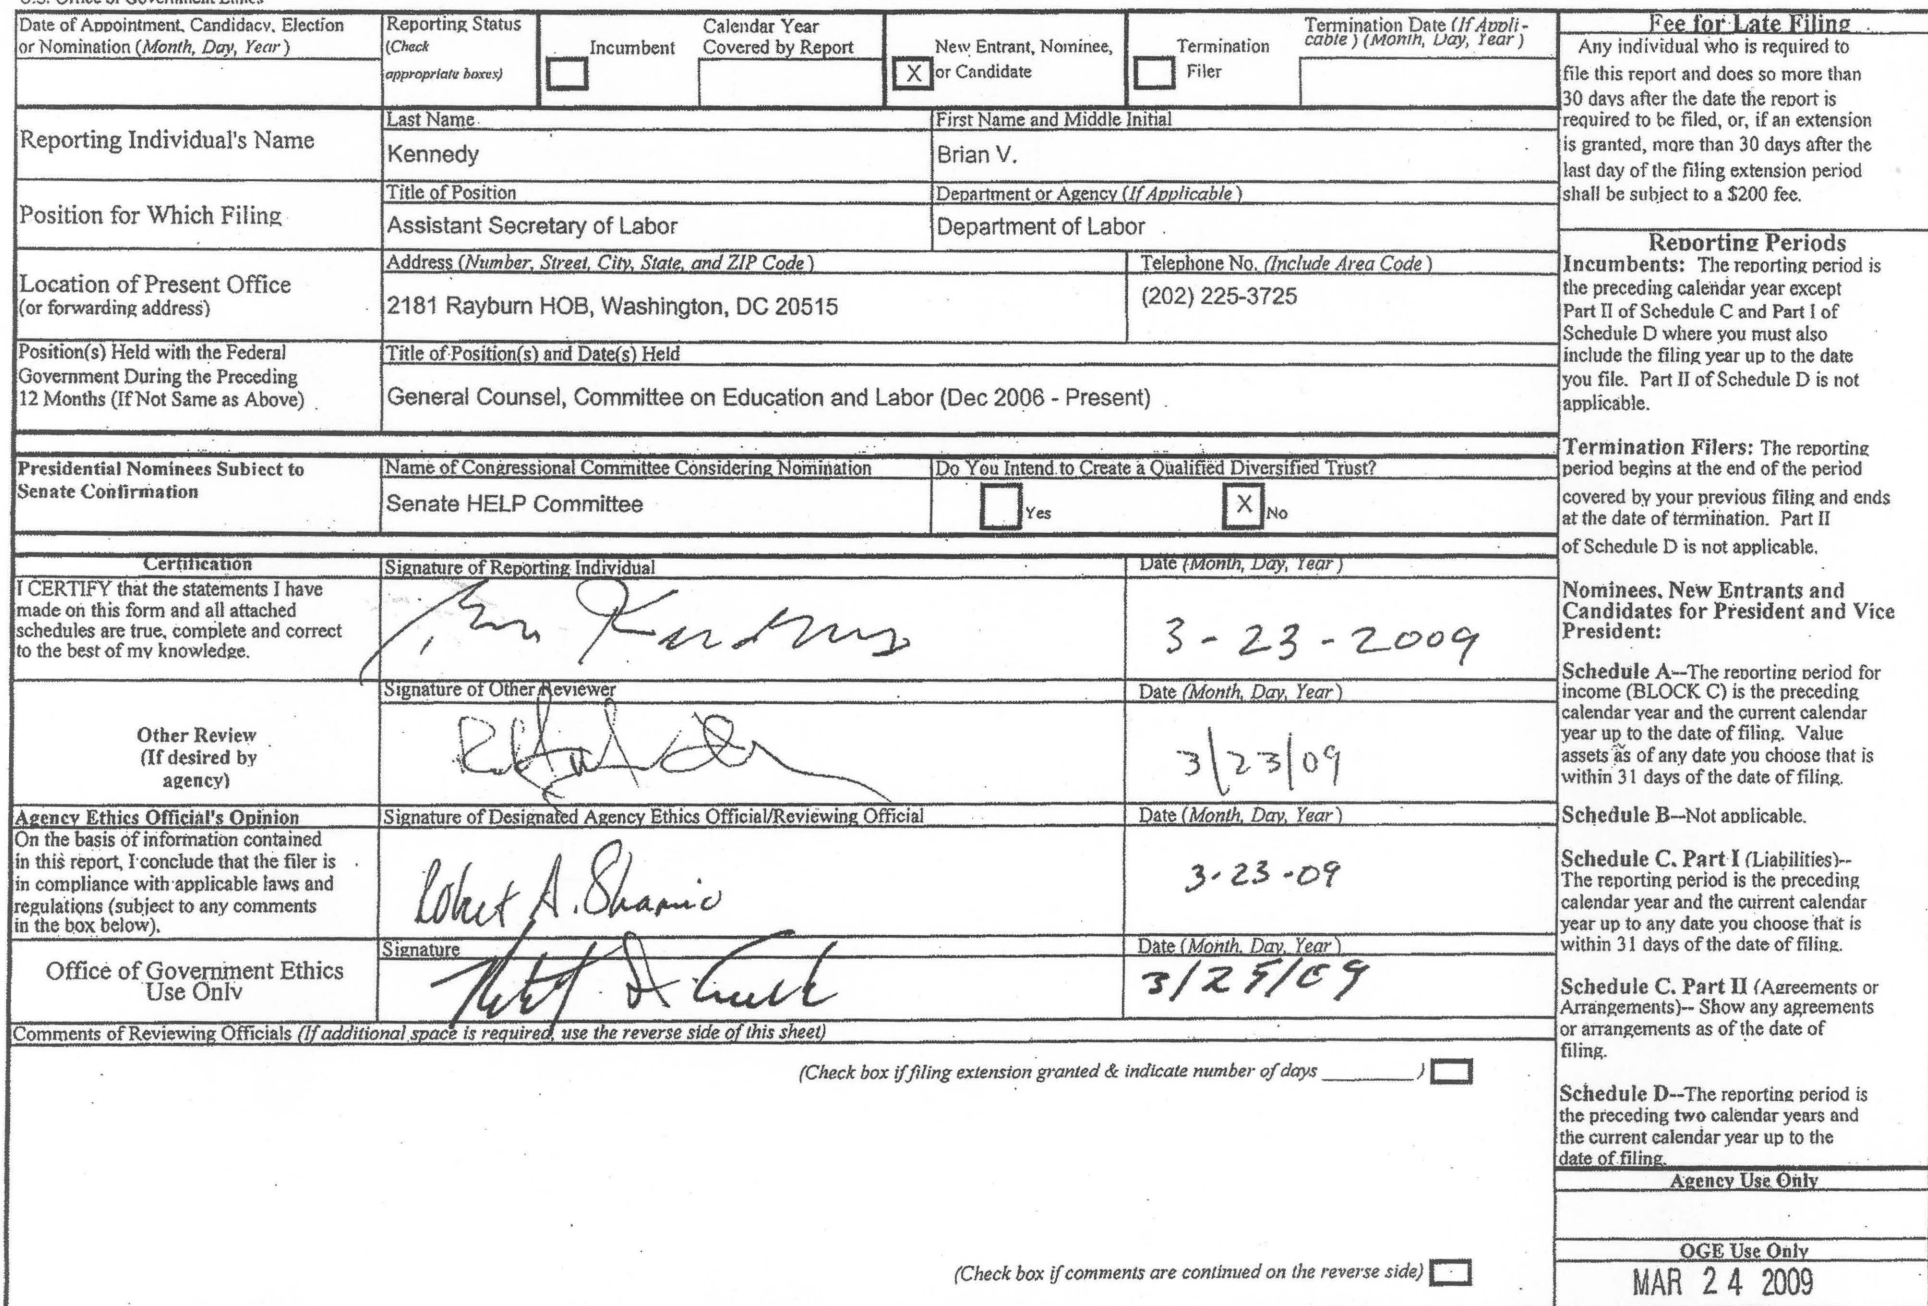 U.S. Office of Government Ethics
Date of Appointment, Candidacy, Election
or Nomination (Month, Day, Year)
Reporting Status
(Check
appropriate boxes)
Incumbent
Calendar Year
Covered by Report
X
New Entrant, Nominee,
or Candidate
Termination
Filer
Termination Date (If Appli-
cable) (Month, Day, Year)
Reporting Individual's Name
Last Name
Kennedy
First Name and Middle Initial
Brian V.
Position for Which Filing
Title of Position
Assistant Secretary of Labor
Department or Agency (If Applicable)
Department of Labor
Location of Present Office
(or forwarding address)
Address (Number, Street, City, State, and ZIP Code)
2181 Rayburn HOB, Washington, DC 20515
Telephone No. (Include Area Code)
(202) 225-3725
Position(s) Held with the Federal
Government During the Preceding
12 Months (If Not Same as Above)
Title of Position(s) and Date(s) Held
General Counsel, Committee on Education and Labor (Dec 2006 - Present)
Presidential Nominees Subject to
Senate Confirmation
Name of Congressional Committee Considering Nomination
Senate HELP Committee
Do You Intend to Create a Qualified Diversified Trust?
Yes
X
No
Certification
I CERTIFY that the statements I have
made on this form and all attached
schedules are true, complete and correct
to the best of my knowledge.
Signature of Reporting Individual
Date (Month, Day, Year)
3-23-2009
Other Review
(If desired by
agency)
Signature of Other Reviewer
Date (Month, Day, Year)
3/23/09
Agency Ethics Official's Opinion
On the basis of information contained
in this report, I conclude that the filer is
in compliance with applicable laws and
regulations (subject to any comments
in the box below).
Signature of Designated Agency Ethics Official/Reviewing Official
Robert A.
Date (Month, Day, Year)
3-23-09
Office of Government Ethics
Use Only
Signature
Date (Month, Day, Year)
Comments of Reviewing Officials (If additional space is required, use the reverse side of this sheet)
(Check box if filing extension granted & indicate number of days ________)
(Check box if comments are continued on the reverse side)
Fee for Late Filing
Any individual who is required to
file this report and does so more than
30 days after the date the report is
required to be filed, or, if an extension
is granted, more than 30 days after the
last day of the filing extension period
shall be subject to a $200 fee.
Reporting Periods
Incumbents: The reporting period is
the preceding calendar year except
Part II of Schedule C and Part I of
Schedule D where you must also
include the filing year up to the date
you file. Part II of Schedule D is not
applicable.
Termination Filers: The reporting
period begins at the end of the period
covered by your previous filing and ends
at the date of termination. Part II
of Schedule D is not applicable.
Nominees, New Entrants and
Candidates for President and Vice
President:
Schedule A--The reporting period for
income (BLOCK C) is the preceding
calendar year and the current calendar
year up to the date of filing. Value
assets as of any date you choose that is
within 31 days of the date of filing.
Schedule B--Not applicable.
Schedule C, Part I (Liabilities)--
The reporting period is the preceding
calendar year and the current calendar
year up to any date you choose that is
within 31 days of the date of filing.
Schedule C, Part II (Agreements or
Arrangements)-- Show any agreements
or arrangements as of the date of
filing.
Schedule D--The reporting period is
the preceding two calendar years and
the current calendar year up to the
date of filing.
Agency Use Only
OGE Use Only
MAR 24 2009